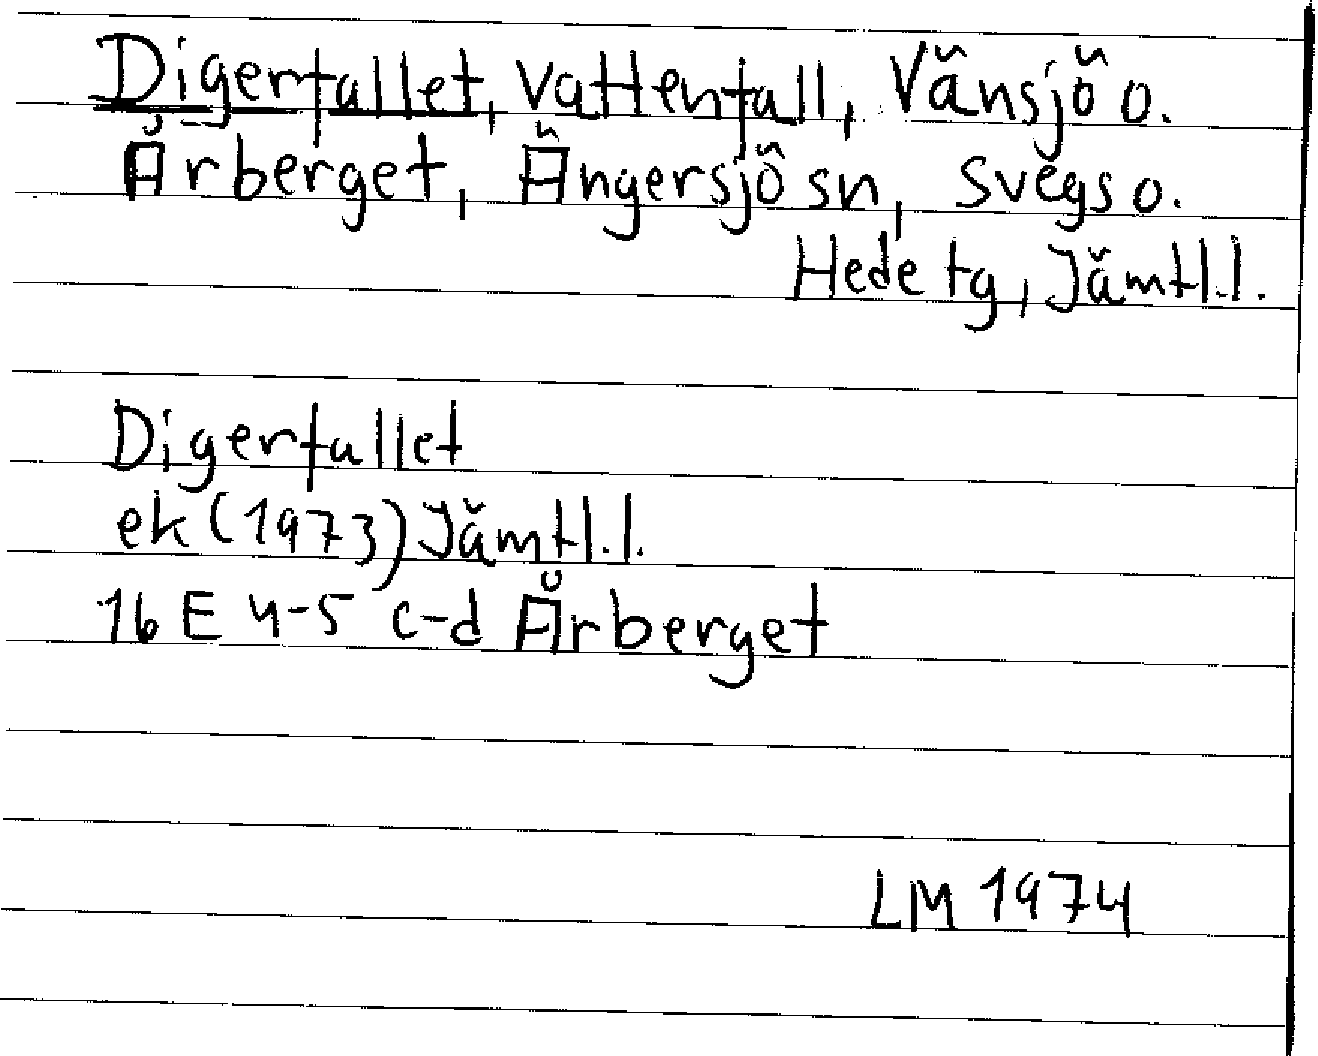 Digerfallet, Vattenfall, Vänsjö o.
Årberget, Ängersjö sn, Svegs o.
Hede tg, Jämtl.l.
Digerfallet
ek (1973) Jämtl.l.
16 E 4-5 c-d Årberget
LM 1974